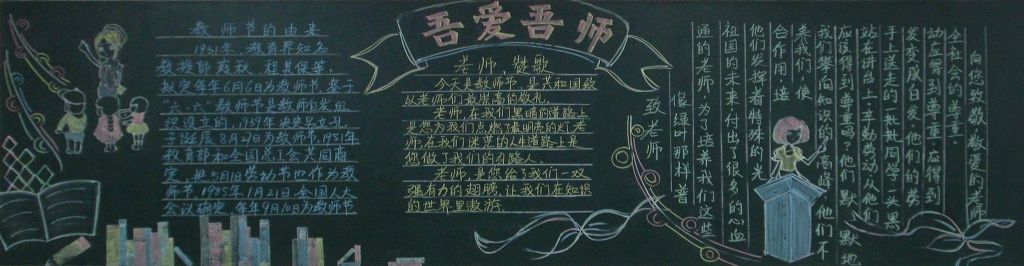 吾爱吾师
教师节的由来
1931年,教育界知名
教授邰爽秋、程其保等,
拟定每年6月6日为教师节.鉴于
“六.六”教师节是教师自发组
织设立的,1939年决定另立孔
子诞辰8月27日为教师节,1951年
教育部和全国总工会共同商
定,把5月1日劳动节也作为教
师节.1985年1月21日全国人大
会议确定,每年9月10日为教师节
老师,赞歌
今天是教师节,是共和国致
以老师们最崇高的敬礼.
老师,在我们黑暗的道路上
是您为我们点燃了最明亮的灯.老
师,在我们迷茫的人生道路上是
您做了我们的引路人.
老师,是您给了我们一双
强有力的翅膀,让我们在知识
的世界里遨游.
致老师
像绿叶那样普
通的老师,为了培养我们这些
祖国的未来,付出了很多的心血
他们发挥着特殊的光
合作用,造
养我们,使
我们攀向知识的高峰,他们不
应该得到尊重吗?他们默默地
站在讲台上,辛勤劳动,从他们
手上送走的一批批同学,一头黑
发变成白发,他们的劳
动应得到尊重,应得到
全社会的尊重.
向您致敬,敬爱的老师